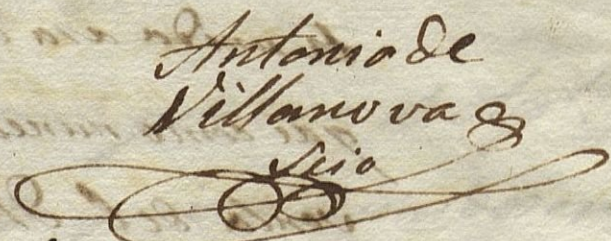 Antonio de
Villanova
Scio